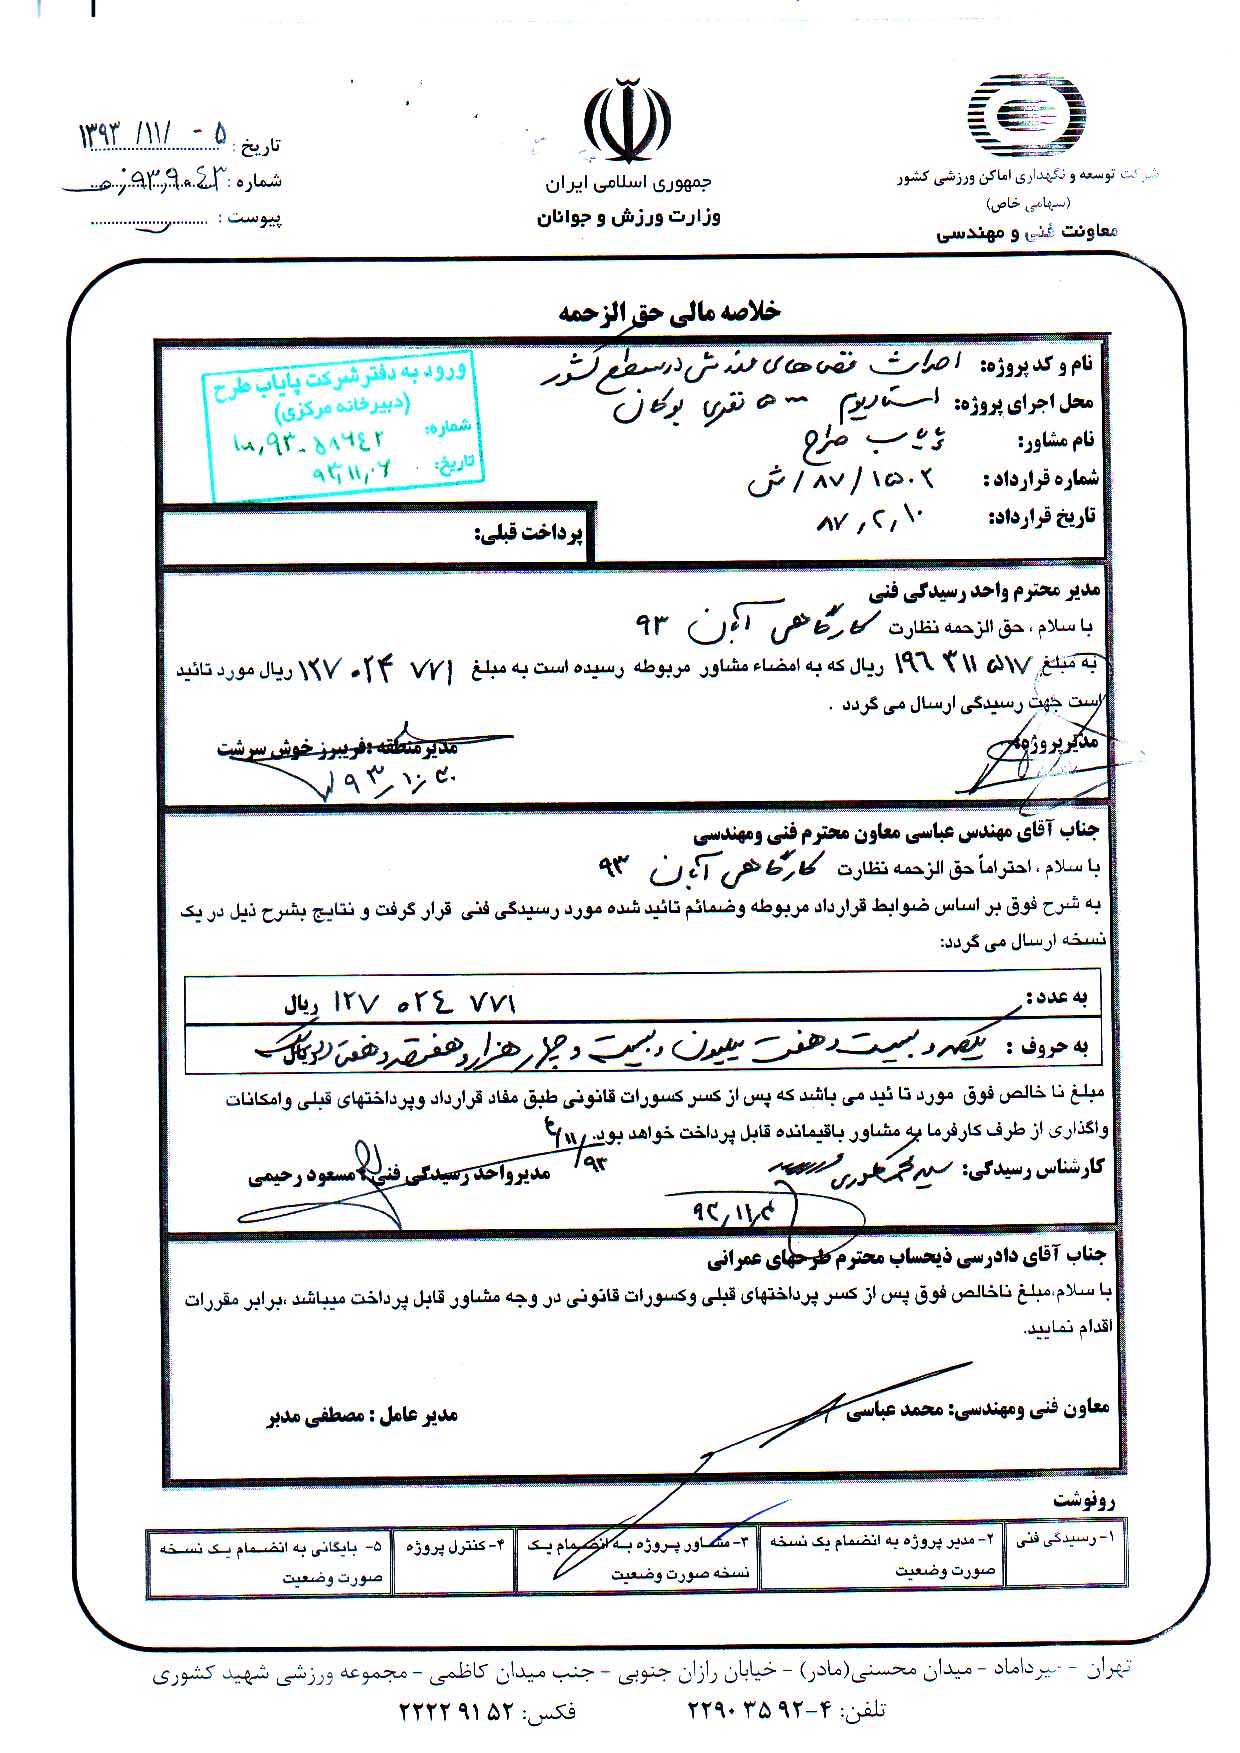 شرکت توسعه و نگهداری اماکن ورزشی کشور
(سهامی خاص)
معاونت فنی و مهندسی
جمهوری اسلامی ایران
وزارت ورزش و جوانان
تاریخ : ۱۳۹۳/۱۱/۰۵
شماره :
پیوست :
خلاصه مالی حق الزحمه
نام و کد پروژه: احداث فضاهای ورزشی در سطح کشور
محل اجرای پروژه: استادیوم ۵۰۰۰ نفری بوکان
نام مشاور: پایاب طرح
شماره قرارداد : ۱۵۰۲/۸۷/ش
تاریخ قرارداد: ۸۷,۲,۱۰
ورود به دفتر شرکت پایاب طرح
(دبیرخانه مرکزی)
شماره:
تاریخ: ۹۳,۱۱,۰۶
پرداخت قبلی:
مدیر محترم واحد رسیدگی فنی
با سلام ، حق الزحمه نظارت کارگاهی آبان ۹۳
به مبلغ ۱۹۶ ۳۱۱ ۵۱۷ ریال که به امضاء مشاور مربوطه رسیده است به مبلغ ۱۲۷ ۰۲۴ ۷۷۱ ریال مورد تائید
است جهت رسیدگی ارسال می گردد .
مدیرپروژه:
مدیرمنطقه :فریبرز خوش سرشت
۹۳,۱۰,۳۰
جناب آقای مهندس عباسی معاون محترم فنی ومهندسی
با سلام ، احتراماً حق الزحمه نظارت کارگاهی آبان ۹۳
به شرح فوق بر اساس ضوابط قرارداد مربوطه وضمائم تائید شده مورد رسیدگی فنی قرار گرفت و نتایج بشرح ذیل در یک
نسخه ارسال می گردد:
به عدد : ۱۲۷ ۰۲۴ ۷۷۱ ریال
به حروف : یکصد و بیست و هفت میلیون و بیست و چهار هزار و هفتصد و هفتاد و یک ریال
مبلغ نا خالص فوق مورد تا ئید می باشد که پس از کسر کسورات قانونی طبق مفاد قرارداد وپرداختهای قبلی وامکانات
واگذاری از طرف کارفرما به مشاور باقیمانده قابل پرداخت خواهد بود.
کارشناس رسیدگی:
مدیرواحد رسیدگی فنی : مسعود رحیمی
جناب آقای دادرسی ذیحساب محترم طرحهای عمرانی
با سلام،مبلغ ناخالص فوق پس از کسر پرداختهای قبلی وکسورات قانونی در وجه مشاور قابل پرداخت میباشد ،برابر مقررات
اقدام نمایید.
معاون فنی ومهندسی: محمد عباسی
مدیر عامل : مصطفی مدبر
رونوشت
۱- رسیدگی فنی
۲- مدیر پروژه به انضمام یک نسخه
صورت وضعیت
۳- مشاور پروژه به انضمام یک
نسخه صورت وضعیت
۴- کنترل پروژه
۵- بایگانی به انضمام یک نسخه
صورت وضعیت
تهران - میرداماد - میدان محسنی(مادر) - خیابان رازان جنوبی - جنب میدان کاظمی - مجموعه ورزشی شهید کشوری
تلفن: ۴-۲۲۹۰۳۵۹۲ فکس: ۲۲۲۲۹۱۵۲